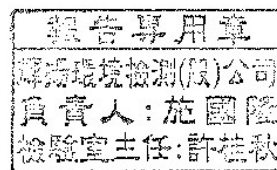 報告專用章
環境檢測(股)公司
負責人:施國隆
檢驗室主任:許桂秋